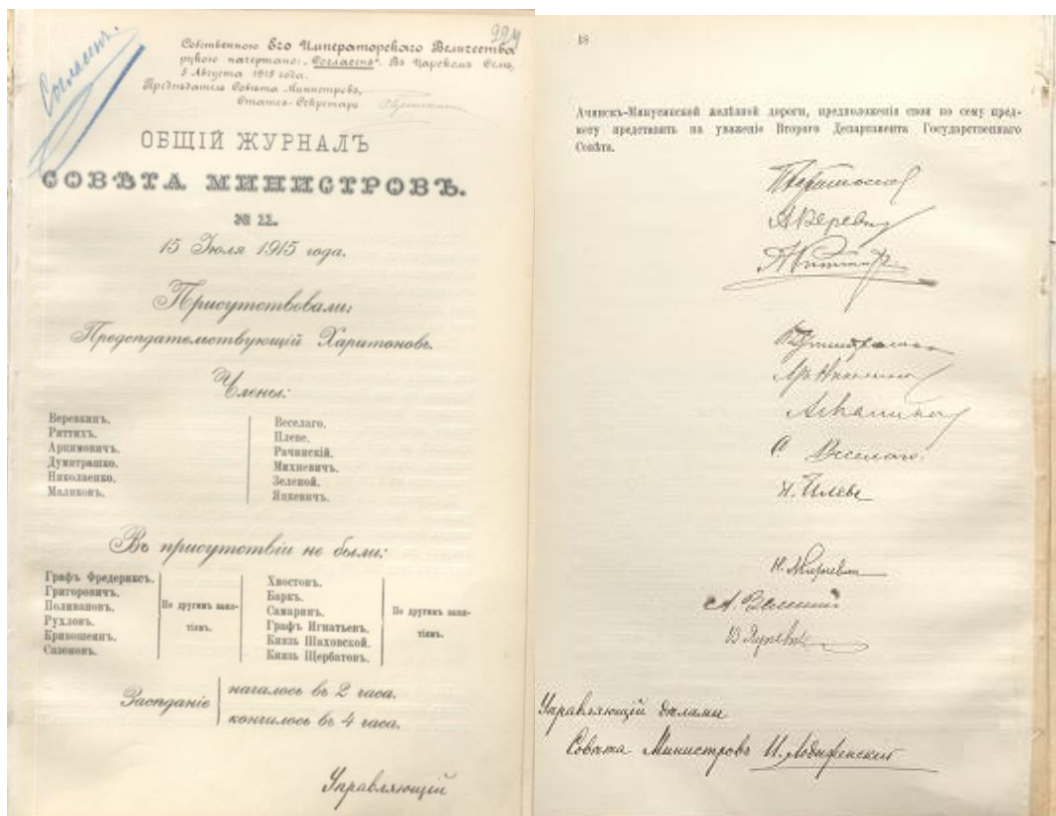 Согласен.
224
Собственною Его Императорскаго Величества
рукою начертано: „Согласенъ". Въ Царскомъ Селѣ,
5 Августа 1915 года.
Предсѣдатель Совѣта Министровъ,
Статсъ-Секретарь
ОБЩІЙ ЖУРНАЛЪ
СОВѢТА МИНИСТРОВЪ.
15 Іюля 1915 года.
Присутствовали:
Предсѣдательствующій Харитоновъ.
Члены:
Веревкинъ.
Риттихъ.
Арцимовичъ.
Думитрашко.
Николаенко.
Маликовъ.
Веселаго.
Плеве.
Рачинскій.
Михневичъ.
Зеленой.
Яцкевичъ.
Въ присутствіи не были:
Графъ Фредериксъ.
Григоровичъ.
Поливановъ.
Рухловъ.
Кривошеинъ.
Сазоновъ.
По другимъ заня-
тіямъ.
Хвостовъ.
Баркъ.
Самаринъ.
Графъ Игнатьевъ.
Князь Шаховской.
Князь Щербатовъ.
По другимъ заня-
тіямъ.
Засѣданіе
началось въ 2 часа.
кончилось въ 4 часа.
Управляющій
18
Ачинскъ-Минусинской желѣзной дороги, предположенія свои по сему пред-
мету представить на уваженіе Второго Департамента Государственнаго
Совѣта.
А Веревкин
С Веселаго.
Н. Плеве
Управляющій дѣлами
Совѣта Министровъ И. Лодыженскій